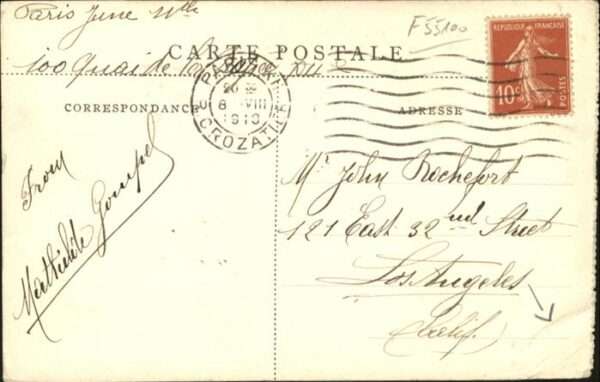 Paris June 11th
F55100
REPUBLIQUE FRANÇAISE
10c
POSTES
CARTE POSTALE
100 Quai de
PARIS
8 VIII
1910
R. CROZATIER
CORRESPONDANCE
ADRESSE
From
Mathilde Gompel
Mr John Rochefort
121 East 32nd Street
Los Angeles
Calif.